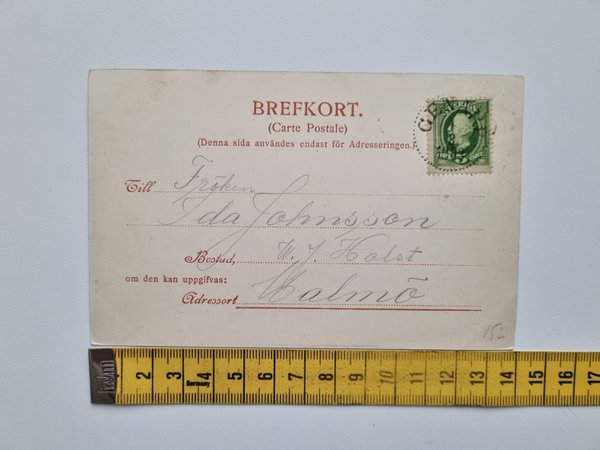 BREFKORT.
(Carte Postale)
(Denna sida användes endast för Adresseringen.)
SVERIGE
Till Fröken
Ida Johnsson
Bostad, W. J. Holst
om den kan uppgifvas:
Adressort Malmö
15-
2 3 4 5 6 7 8 9 10 11 12 13 14 15 16 17
Germany